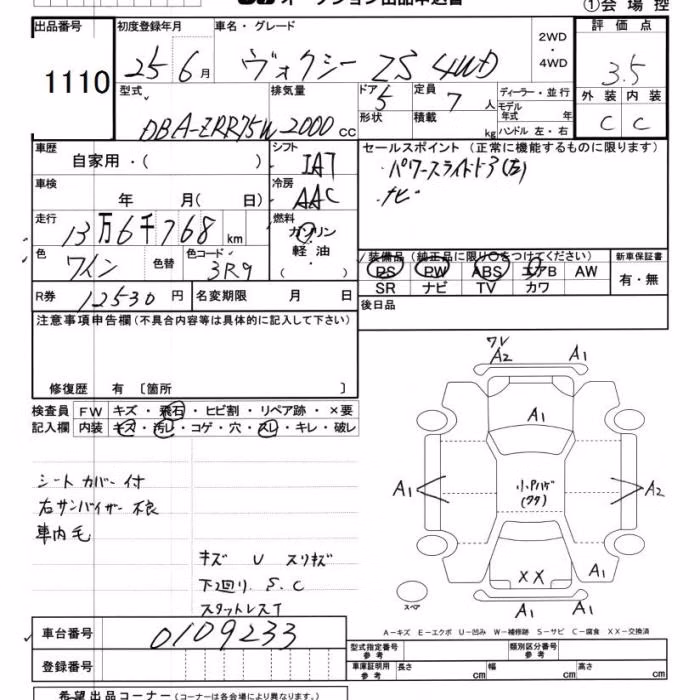 ①会場控
出品番号
1110
初度登録年月
25 6月
車名・グレード
ヴォクシー ZS 4WD
2WD
・
4WD
評価点
3.5
外装 内装
C C
型式
DBA-ZRR75W
排気量
2000 cc
ドア
5
形状
定員
7人
積載
kg
ディーラー・並行
モデル年式 年
ハンドル 左・右
車歴
自家用・( )
シフト
IAT
冷房
AAC
車検
年 月( 日)
走行
13万6千768 km
燃料
ガソリン
・
軽油
・
( )
色
ワイン
色替
色コード
3R9
R券 12530円
名変期限 月 日
セールスポイント(正常に機能するものに限ります)
・パワースライドドア(左)
・ナビ
装備品(純正品に限り○をつけてください)
PS PW ABS エアB AW
SR ナビ TV カワ
新車保証書
有・無
後日品
注意事項申告欄(不具合内容等は具体的に記入して下さい)
修復歴 有〔箇所 〕
検査員記入欄
FW キズ・飛石・ヒビ割・リペア跡・×要
内装 キズ・汚レ・コゲ・穴・スレ・キレ・破レ
シートカバー付
右サンバイザー不良
車内毛
キズ U スリキズ
下廻り S.C
スタットレスT
ワレ
A2 A1
A1
A1 小Pハゲ A2
(ワク)
XX A1
A1 A1
スペア
A-キズ E-エクボ U-凹み W-補修跡 S-サビ C-腐食 XX-交換済
車台番号
0109233
登録番号
型式指定番号
参考
類別区分番号
参考
車庫証明用
参考
長さ cm 幅 cm 高さ cm
希望出品コーナー(コーナーは各会場により異なります。)